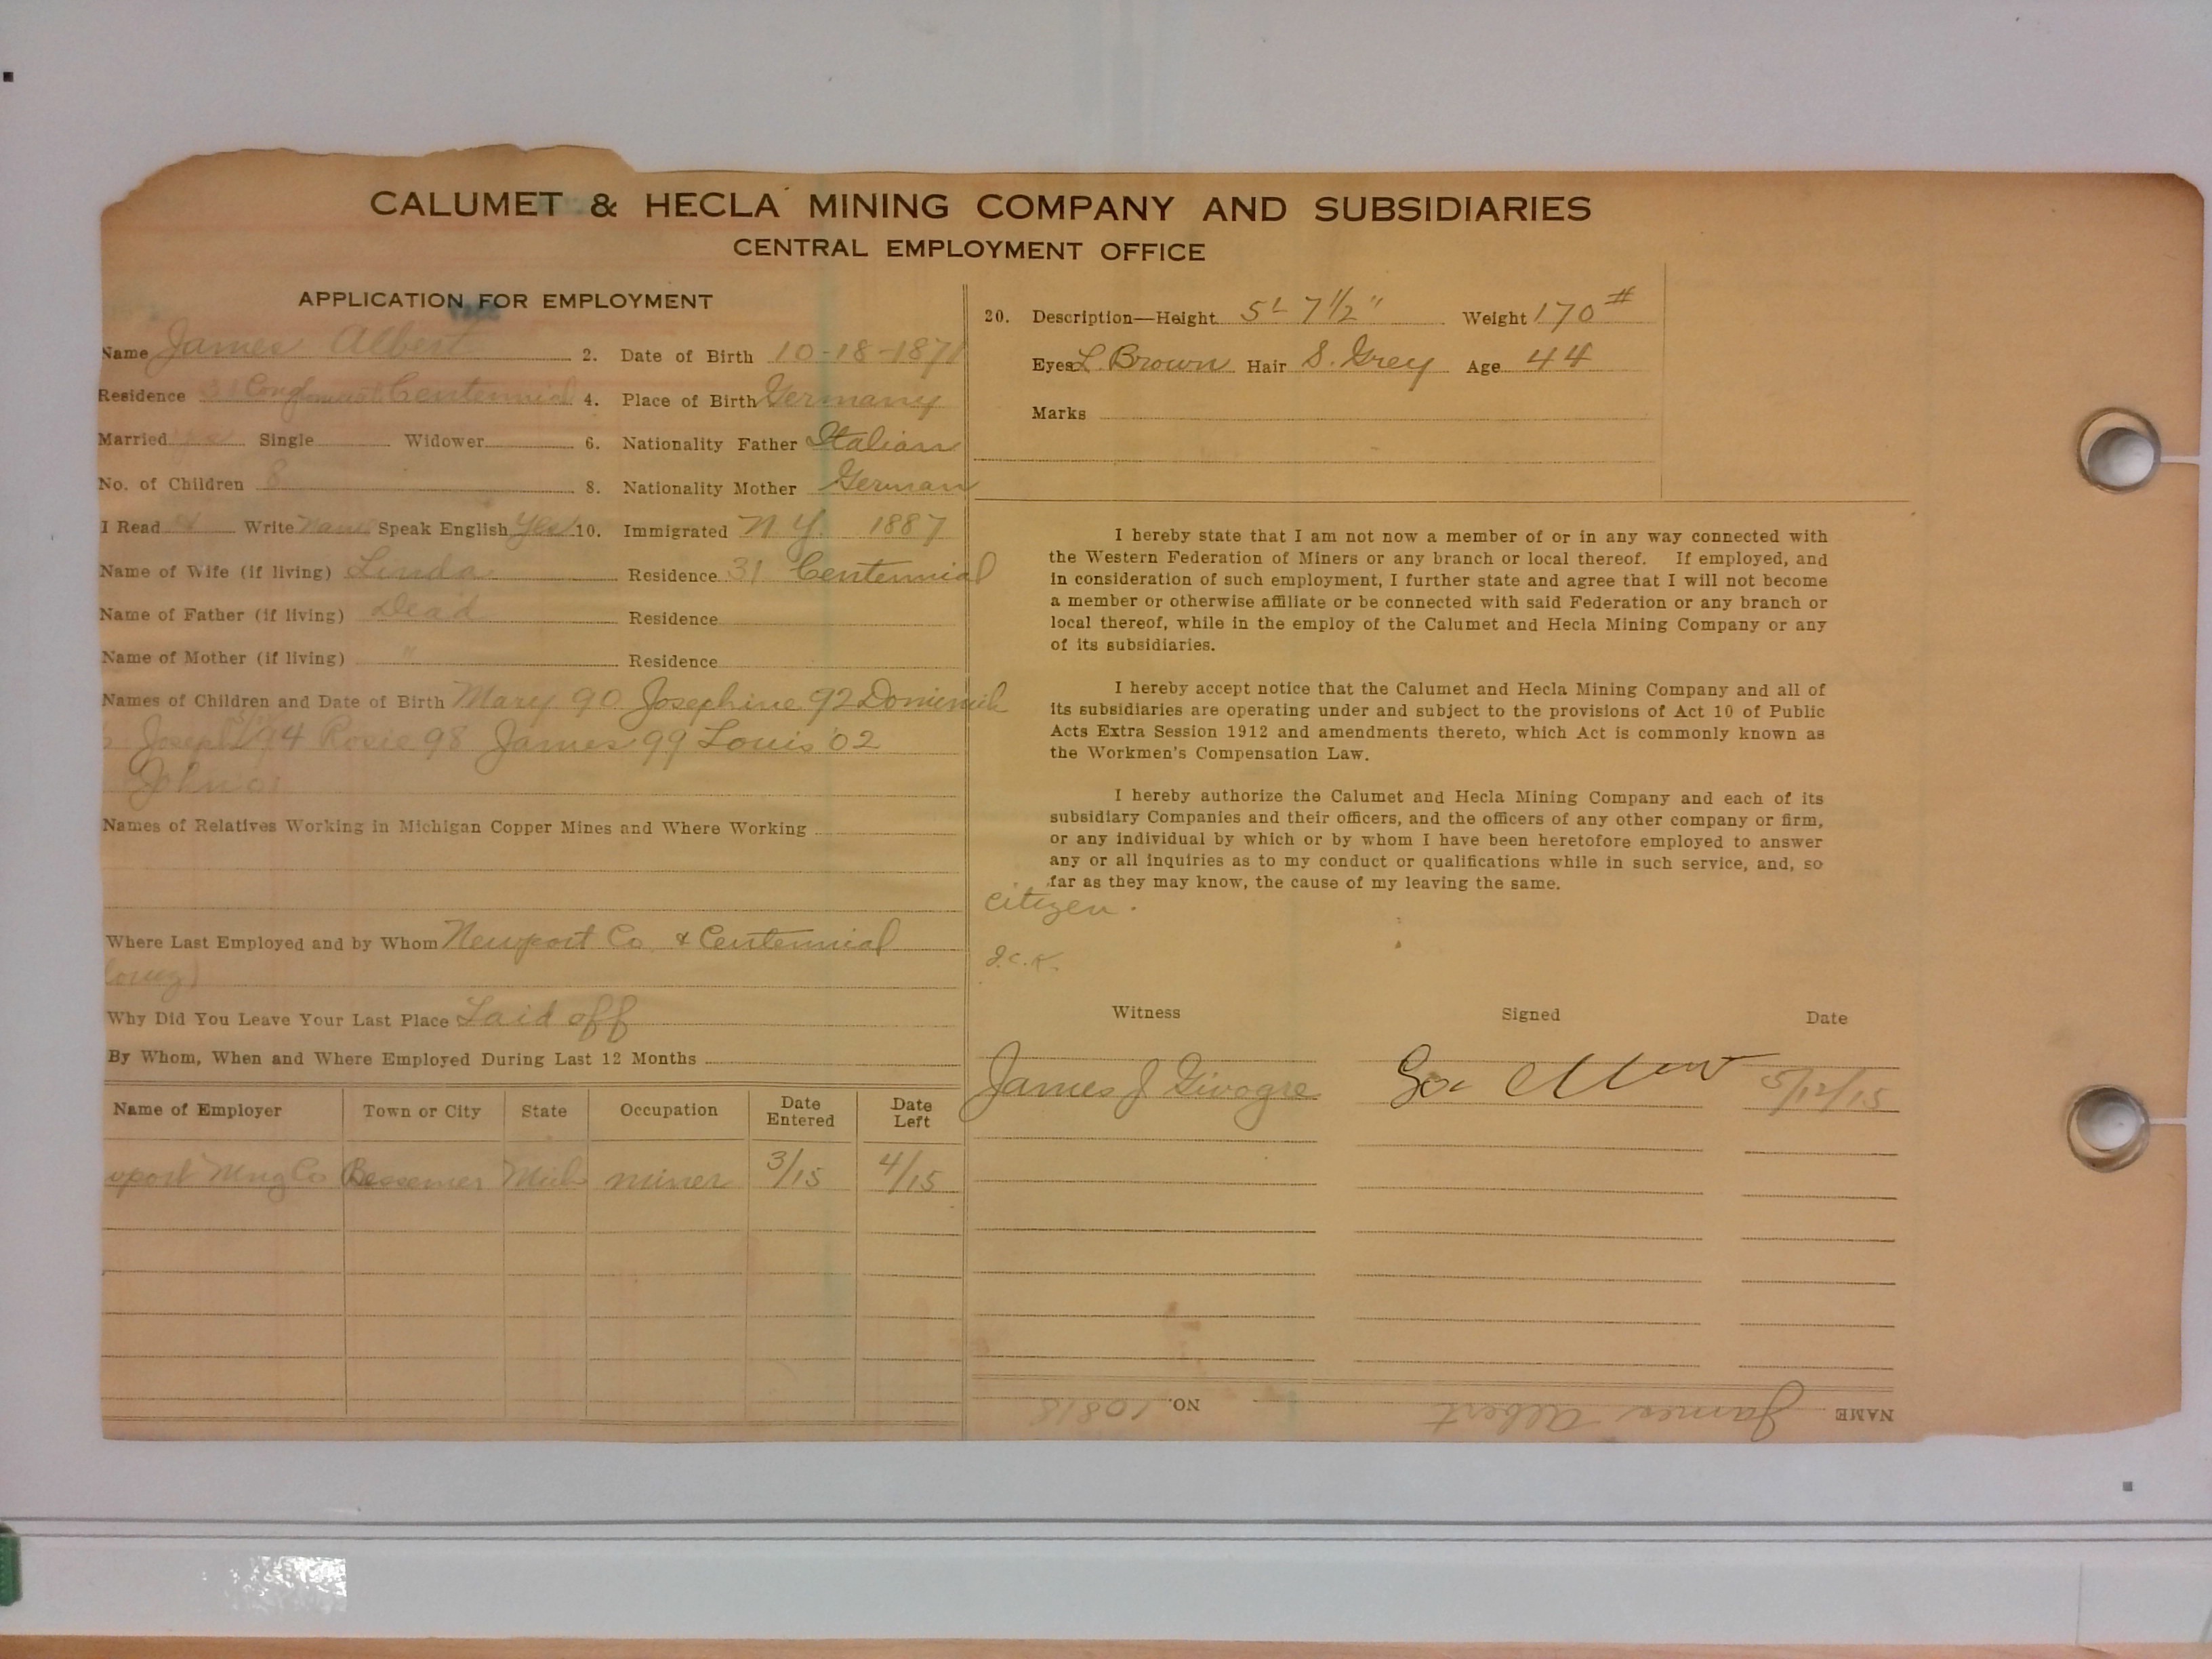 CALUMET & HECLA MINING COMPANY AND SUBSIDIARIES
CENTRAL EMPLOYMENT OFFICE
APPLICATION FOR EMPLOYMENT
Name James Albert 2. Date of Birth 10-18-1871
Residence 31 Centennial 4. Place of Birth Germany
Married yes Single Widower 6. Nationality Father Italian
No. of Children 8 8. Nationality Mother German
I Read Write name Speak English Yes 10. Immigrated N.Y. 1887
Name of Wife (if living) Linda Residence 31 Centennial
Name of Father (if living) Dead Residence
Name of Mother (if living) " Residence
Names of Children and Date of Birth Mary 90 Josephine 92 Dominick
Joseph 94 Rosie 98 James 99 Louis '02
John
Names of Relatives Working in Michigan Copper Mines and Where Working
Where Last Employed and by Whom Newport Co. & Centennial
Why Did You Leave Your Last Place Laid off
By Whom, When and Where Employed During Last 12 Months
Name of Employer Town or City State Occupation Date Entered Date Left
wport Mng Co Bessemer Mich miner 3/15 4/15
20. Description—Height 5' 7 1/2" Weight 170#
Eyes L. Brown Hair S. Grey Age 44
Marks
I hereby state that I am not now a member of or in any way connected with
the Western Federation of Miners or any branch or local thereof. If employed, and
in consideration of such employment, I further state and agree that I will not become
a member or otherwise affiliate or be connected with said Federation or any branch or
local thereof, while in the employ of the Calumet and Hecla Mining Company or any
of its subsidiaries.
I hereby accept notice that the Calumet and Hecla Mining Company and all of
its subsidiaries are operating under and subject to the provisions of Act 10 of Public
Acts Extra Session 1912 and amendments thereto, which Act is commonly known as
the Workmen's Compensation Law.
I hereby authorize the Calumet and Hecla Mining Company and each of its
subsidiary Companies and their officers, and the officers of any other company or firm,
or any individual by which or by whom I have been heretofore employed to answer
any or all inquiries as to my conduct or qualifications while in such service, and, so
far as they may know, the cause of my leaving the same.
citizen.
Witness Signed Date
James J Givogre 5/12/15
NAME James Albert NO. 10818